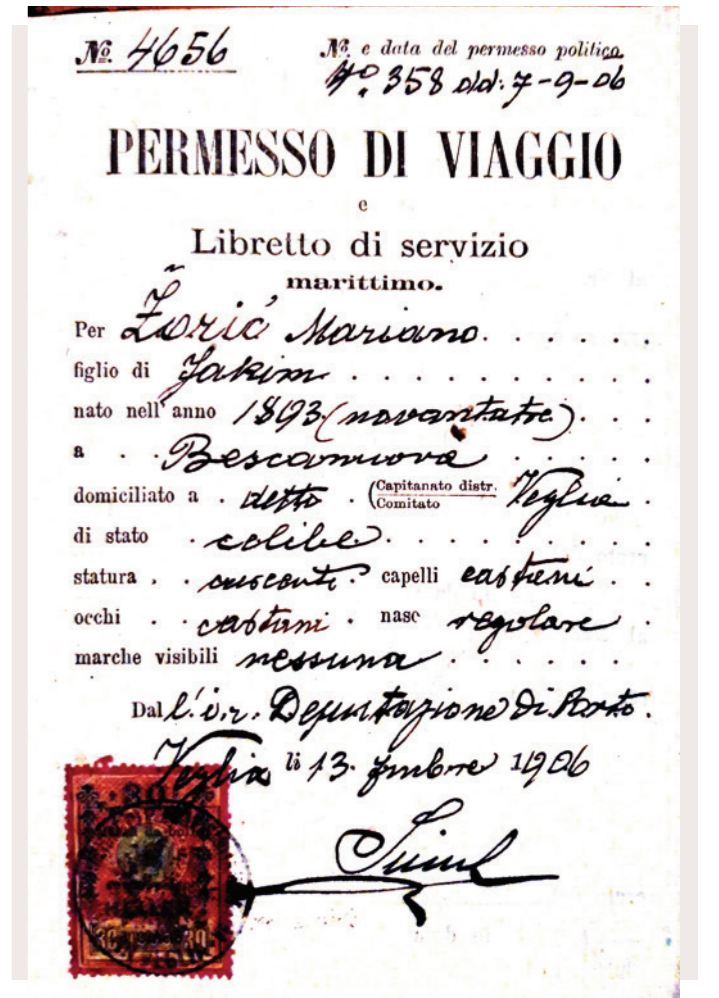 № 4656
№ e data del permesso politico
No 358 dd: 7-9-06
PERMESSO DI VIAGGIO
e
Libretto di servizio
marittimo.
Per Žorić Mariano
figlio di Jakim
nato nell'anno 1893 (novantatre)
a Bescanuova
domiciliato a detto (Capitanato distr. Comitato Veglia
di stato celibe
statura crescente capelli castani
occhi castani naso regolare
marche visibili nessuna
Dal l'i. r. Deputazione di Porto.
Veglia li 13. 1906
30 30